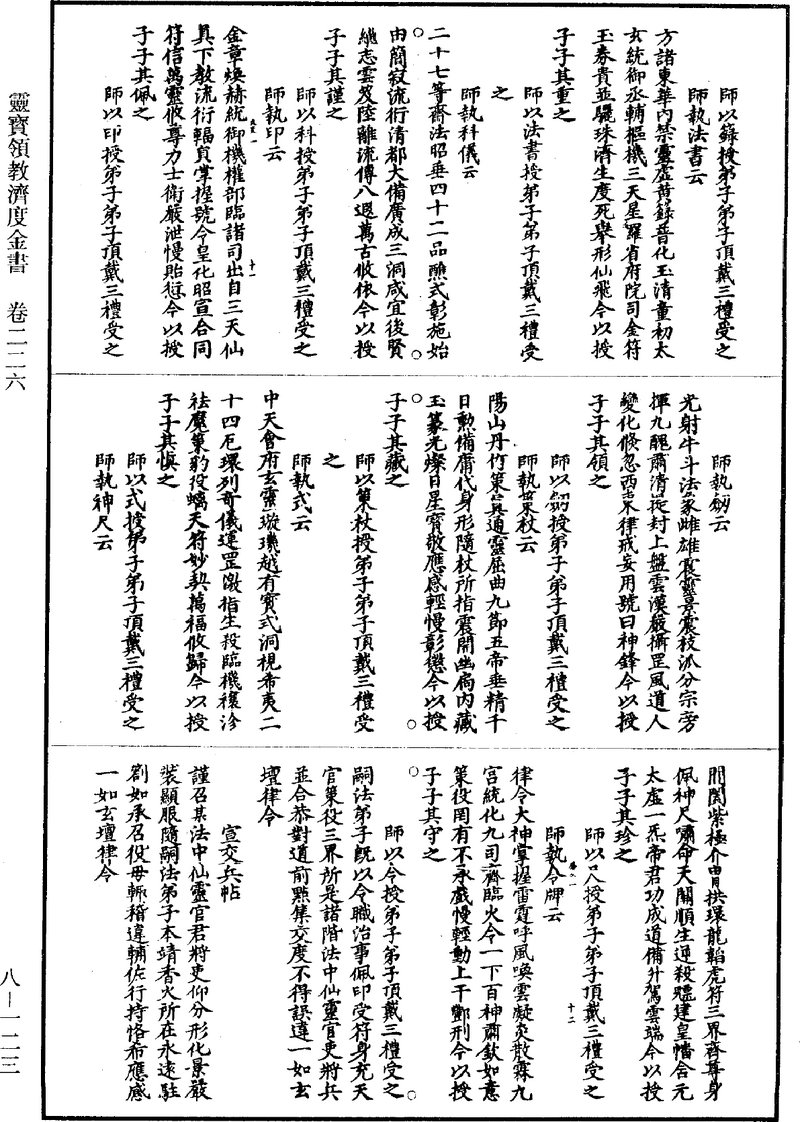 靈寶領教濟度金書 卷二二六
師以籙授弟子弟子頂戴三禮受之
師執法書云
方諸東華內禁靈虛黃籙普化玉清童初太
玄統御丞輔樞機三天星羅省府院司金符
玉券貴並驪珠濟生度死舉形仙飛今以授
子子其重之
師以法書授弟子弟子頂戴三禮受
之
師執科儀云
二十七等齋法昭垂四十二品醮式彰施始
由簡寂流衍清都大備廣成三洞咸宜後賢
繼志雲笈陸離流傳八遐萬古攸依今以授
子子其謹之
師以科授弟子弟子頂戴三禮受之
師執印云
金章煥赫統御機權部臨諸司出自三天仙
真下教流衍輻員掌握號令皇化昭宣合同
符信萬靈攸尊力士衛嚴泄慢貽愆今以授
子子其佩之
師以印授弟子弟子頂戴三禮受之
師執劒云
光射牛斗法象雌雄震靈景震枝派分宗旁
揮九醜肅清提封上盤雲漢嚴攝罡風道人
變化倏忽西東律戒妄用號曰神鋒今以授
子子其領之
師以劒授弟子弟子頂戴三禮受之
師執策杖云
陽山丹竹策箕通靈屈曲九節五帝垂精千
日勲備廣代身形隨杖所指震開幽扃內藏
玉篆光燦日星寶敬應感輕慢彰懲今以授
子子其藏之
師以策杖授弟子弟子頂戴三禮受
之
師執式云
中天會府玄靈璇璣越有寶式洞視希夷二
十四厄環列奇儀運罡激指生殺臨機禳沴
祛魔策豹役螭天符妙契萬福攸歸今以授
子子其慎之
師以式授弟子弟子頂戴三禮受之
師執神尺云
開闔紫極介冑拱環龍韜虎符三界齊尊身
佩神尺嘯命天關順生逆殺驅建皇幡合元
太虛一炁帝君功成道備升駕雲端今以授
子子其珍之
師以尺授弟子弟子頂戴三禮受之
師執令牌云
律令大神掌握雷霆呼風喚雲凝炎散霖九
宮統化九司齊臨火令一下百神肅欽如意
策役罔有不承戲慢輕動上干酆刑今以授
子子其守之
師以令授弟子弟子頂戴三禮受之
嗣法弟子既以令職治事佩印受符身充天
官策役三界所是諸階法中仙靈官吏將兵
並合恭對道前點集交度不得誤違一如玄
壇律令
宣交兵帖
謹召某法中仙靈官君將吏仰分形化景嚴
裝顯服隨嗣法弟子本靖香火所在永遠駐
劄如承召役毋輒稽違輔佐行持恪希應感
一如玄壇律令
八—一二三